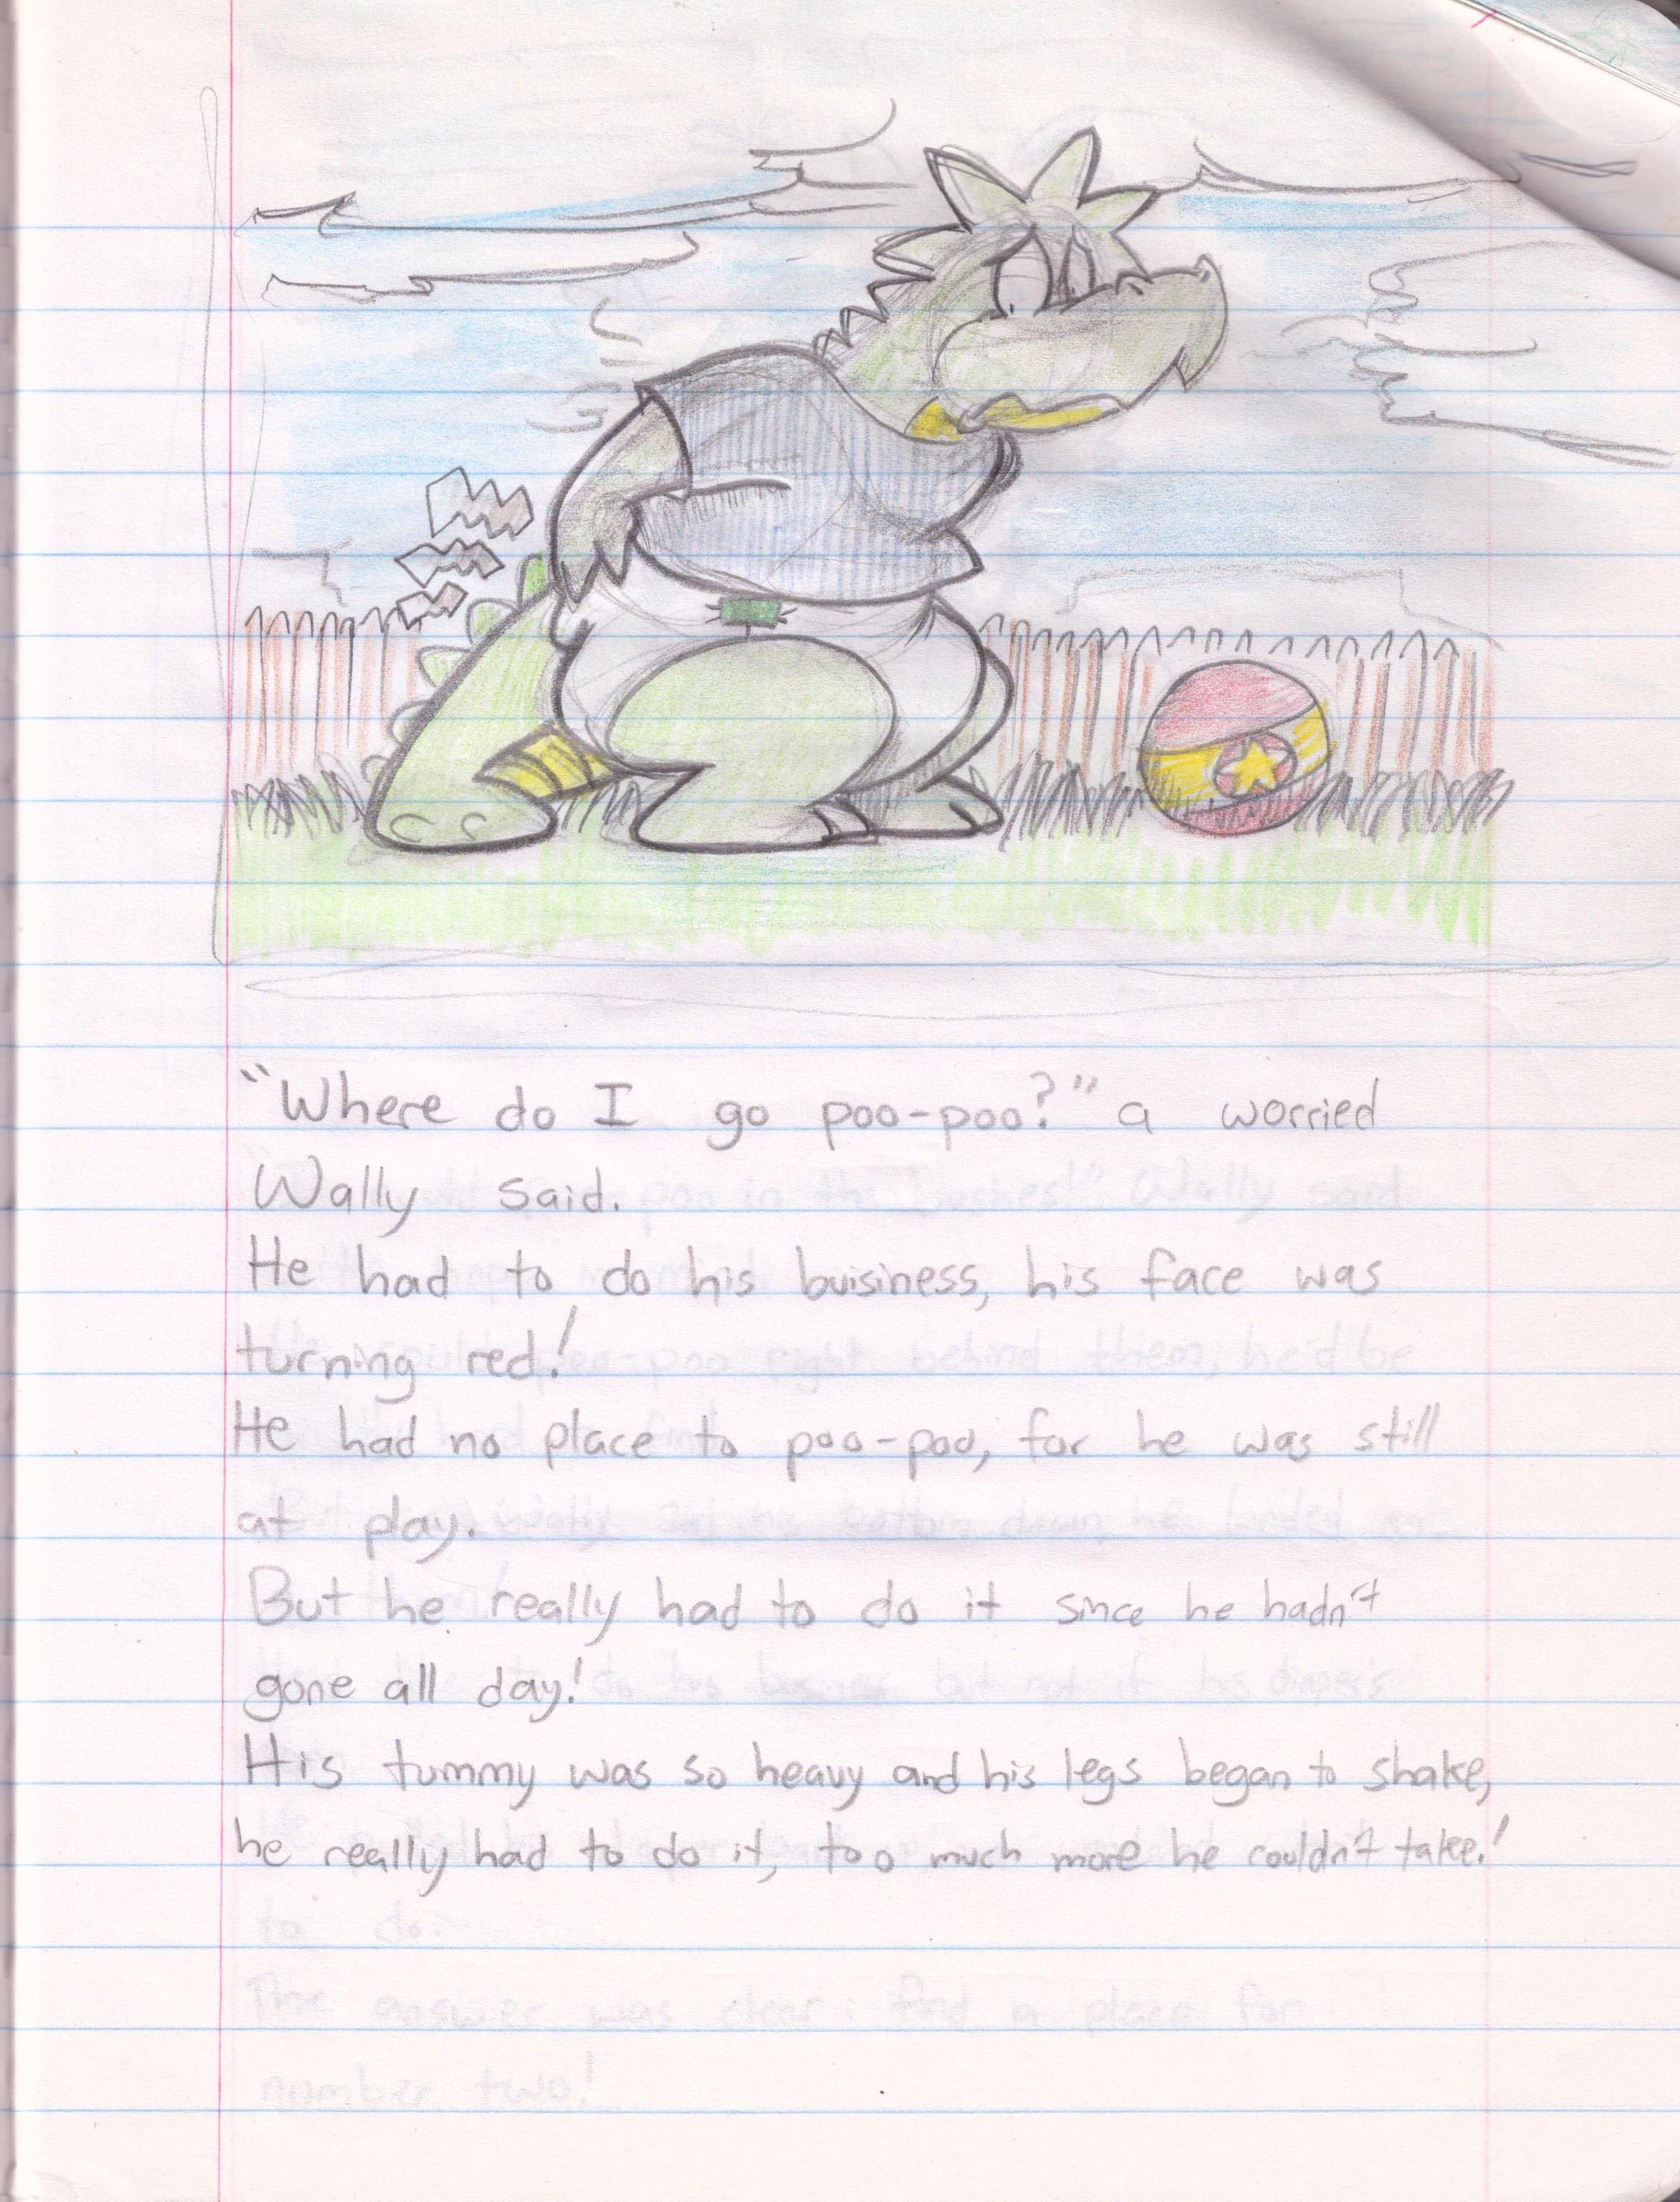 “Where do I go poo-poo?” a worried
Wally said.
He had to do his buisiness, his face was
turning red!
He had no place to poo-poo, for he was still
at play.
But he really had to do it since he hadn't
gone all day!
His tummy was so heavy and his legs began to shake,
he really had to do it, too much more he couldn't take!